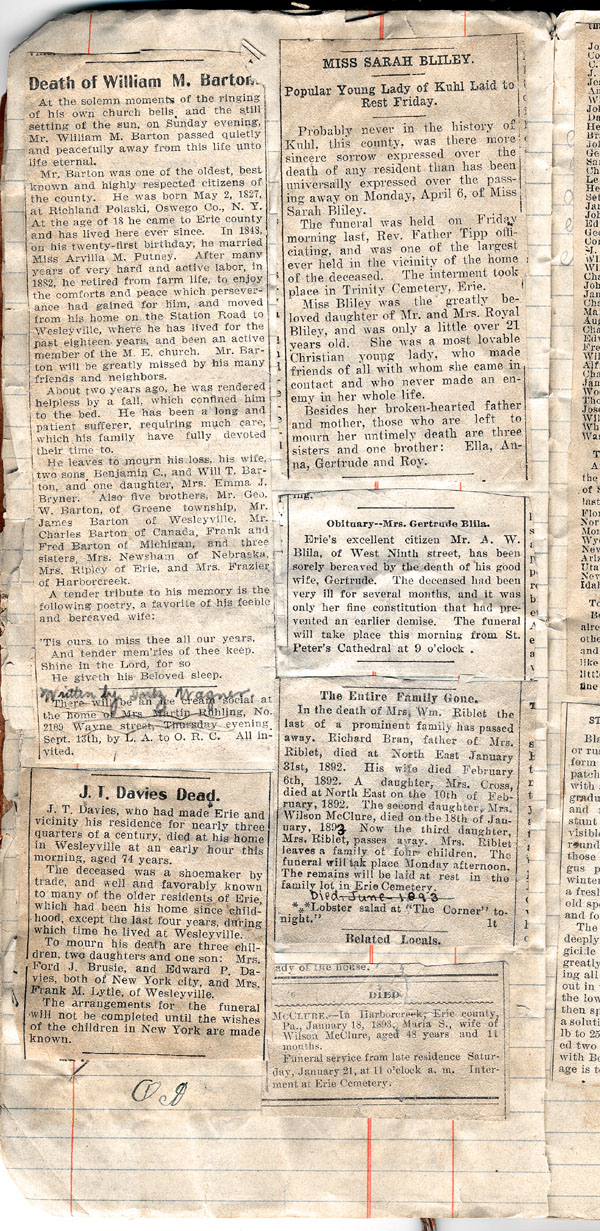 Death of William M. Barton.
At the solemn moments of the ringing
of his own church bells, and the still
setting of the sun, on Sunday evening,
Mr. William M. Barton passed quietly
and peacefully away from this life unto
life eternal.
Mr. Barton was one of the oldest, best
known and highly respected citizens of
the county. He was born May 2, 1827,
at Richland Polaski, Oswego Co., N. Y.
At the age of 18 he came to Erie county
and has lived here ever since. In 1848,
on his twenty-first birthday, he married
Miss Arvilla M. Putney. After many
years of very hard and active labor, in
1882, he retired from farm life, to enjoy
the comforts and peace which persever-
ance had gained for him, and moved
from his home on the Station Road to
Wesleyville, where he has lived for the
past eighteen years, and been an active
member of the M. E. church. Mr. Bar-
ton will be greatly missed by his many
friends and neighbors.
About two years ago, he was rendered
helpless by a fall, which confined him
to the bed. He has been a long and
patient sufferer, requiring much care,
which his family have fully devoted
their time to.
He leaves to mourn his loss, his wife,
two sons, Benjamin C., and Will T. Bar-
ton, and one daughter, Mrs. Emma J.
Bryner. Also five brothers, Mr. Geo.
W. Barton, of Greene township, Mr.
James Barton of Wesleyville, Mr.
Charles Barton of Canada, Frank and
Fred Barton of Michigan, and three
sisters, Mrs. Newsham of Nebraska,
Mrs. Ripley of Erie, and Mrs. Frazier
of Harborcreek.
A tender tribute to his memory is the
following poetry, a favorite of his feeble
and bereaved wife:
'Tis ours to miss thee all our years,
And tender mem'ries of thee keep.
Shine in the Lord, for so
He giveth his Beloved sleep.
Written by Wagner
There will be an ice cream social at
the home of Mrs. Martin Rohling, No.
2169 Wayne street, Thursday evening,
Sept. 13th, by L. A. to O. R. C. All in-
vited.
J. T. Davies Dead.
J. T. Davies, who had made Erie and
vicinity his residence for nearly three
quarters of a century, died at his home
in Wesleyville at an early hour this
morning, aged 74 years.
The deceased was a shoemaker by
trade, and well and favorably known
to many of the older residents of Erie,
which had been his home since child-
hood, except the last four years, during
which time he lived at Wesleyville.
To mourn his death are three chil-
dren, two daughters and one son: Mrs.
Ford J. Brusie, and Edward P. Da-
vies, both of New York city, and Mrs.
Frank M. Lytle, of Wesleyville.
The arrangements for the funeral
will not be completed until the wishes
of the children in New York are made
known.
MISS SARAH BLILEY.
Popular Young Lady of Kuhl Laid to
Rest Friday.
Probably never in the history of
Kuhl, this county, was there more
sincere sorrow expressed over the
death of any resident than has been
universally expressed over the pass-
ing away on Monday, April 6, of Miss
Sarah Bliley.
The funeral was held on Friday
morning last, Rev. Father Tipp offi-
ciating, and was one of the largest
ever held in the vicinity of the home
of the deceased. The interment took
place in Trinity Cemetery, Erie.
Miss Bliley was the greatly be-
loved daughter of Mr. and Mrs. Royal
Bliley, and was only a little over 21
years old. She was a most lovable
Christian young lady, who made
friends of all with whom she came in
contact and who never made an en-
emy in her whole life.
Besides her broken-hearted father
and mother, those who are left to
mourn her untimely death are three
sisters and one brother: Ella, An-
na, Gertrude and Roy.
Obituary--Mrs. Gertrude Blila.
Erie's excellent citizen Mr. A. W.
Blila, of West Ninth street, has been
sorely bereaved by the death of his good
wife, Gertrude. The deceased had been
very ill for several months, and it was
only her fine constitution that had pre-
vented an earlier demise. The funeral
will take place this morning from St.
Peter's Cathedral at 9 o'clock .
The Entire Family Gone.
In the death of Mrs. Wm. Riblet the
last of a prominent family has passed
away. Richard Bran, father of Mrs.
Riblet, died at North East January
31st, 1892. His wife died February
6th, 1892. A daughter, Mrs. Cross,
died at North East on the 10th of Feb-
ruary, 1892. The second daughter, Mrs.
Wilson McClure, died on the 18th of Jan-
uary, 1893 Now the third daughter,
Mrs. Riblet, passes away. Mrs. Riblet
leaves a family of fohr children. The
funeral will tak place Monday afternoon.
The remains will be laid at rest in the
family lot in Erie Cemetery.
Died June - 1893
*⁎*Lobster salad at "The Corner" to-
night." 1t
Related Locals.
ady of the house.
DIED
MCCLURE.—In Harborcreek, Erie county,
Pa., January 18, 1893, Maria S., wife of
Wilson McClure, aged 48 years and 11
months.
Funeral service from late residence Satur-
day, January 21, at 11 o'clock a. m. Inter-
ment at Erie Cemetery.